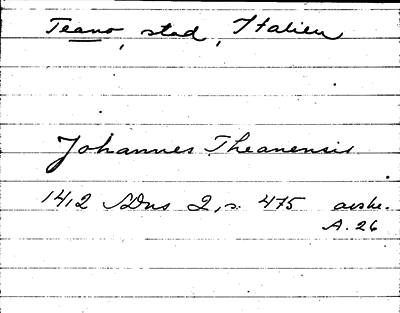 Teano, stad, Italien
Johannes Theanensis
1412 SDns 2, s. 475 avskr.
A. 26